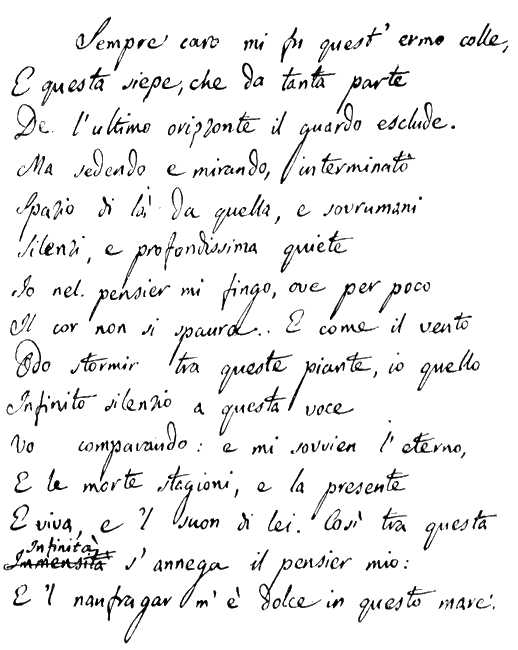 Sempre caro mi fu quest' ermo colle,
E questa siepe, che da tanta parte
De l'ultimo orizzonte il guardo esclude.
Ma sedendo e mirando, interminato
Spazio di là da quella, e sovrumani
Silenzi, e profondissima quiete
Io nel pensier mi fingo, ove per poco
Il cor non si spaura.. E come il vento
Odo stormir tra queste piante, io quello
Infinito silenzio a questa voce
Vo comparando: e mi sovvien l'eterno,
E le morte stagioni, e la presente
E viva, e 'l suon di lei. Così tra questa
Infinità
Immensità s' annega il pensier mio:
E 'l naufragar m' è dolce in questo mare.